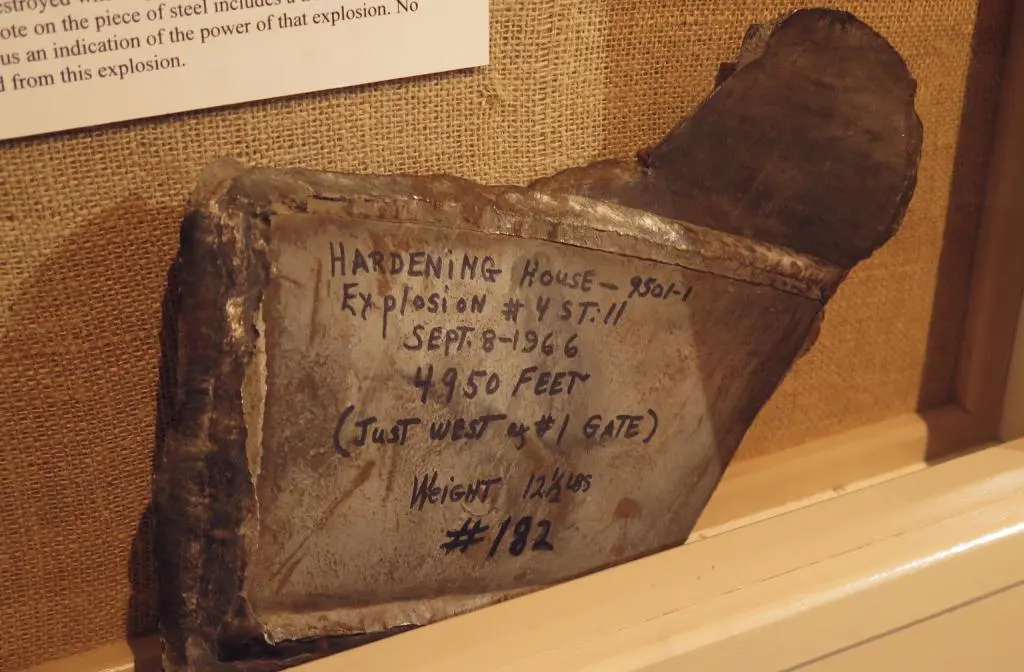 destroyed
ote on the piece of steel includes a
us an indication of the power of that explosion. No
d from this explosion.
HARDENING HOUSE - 9501-1
Explosion # 4 ST: 11
SEPT. 8-1966
4950 FEET
(JUST WEST of #1 GATE)
WEIGHT 12½ LBS
#182